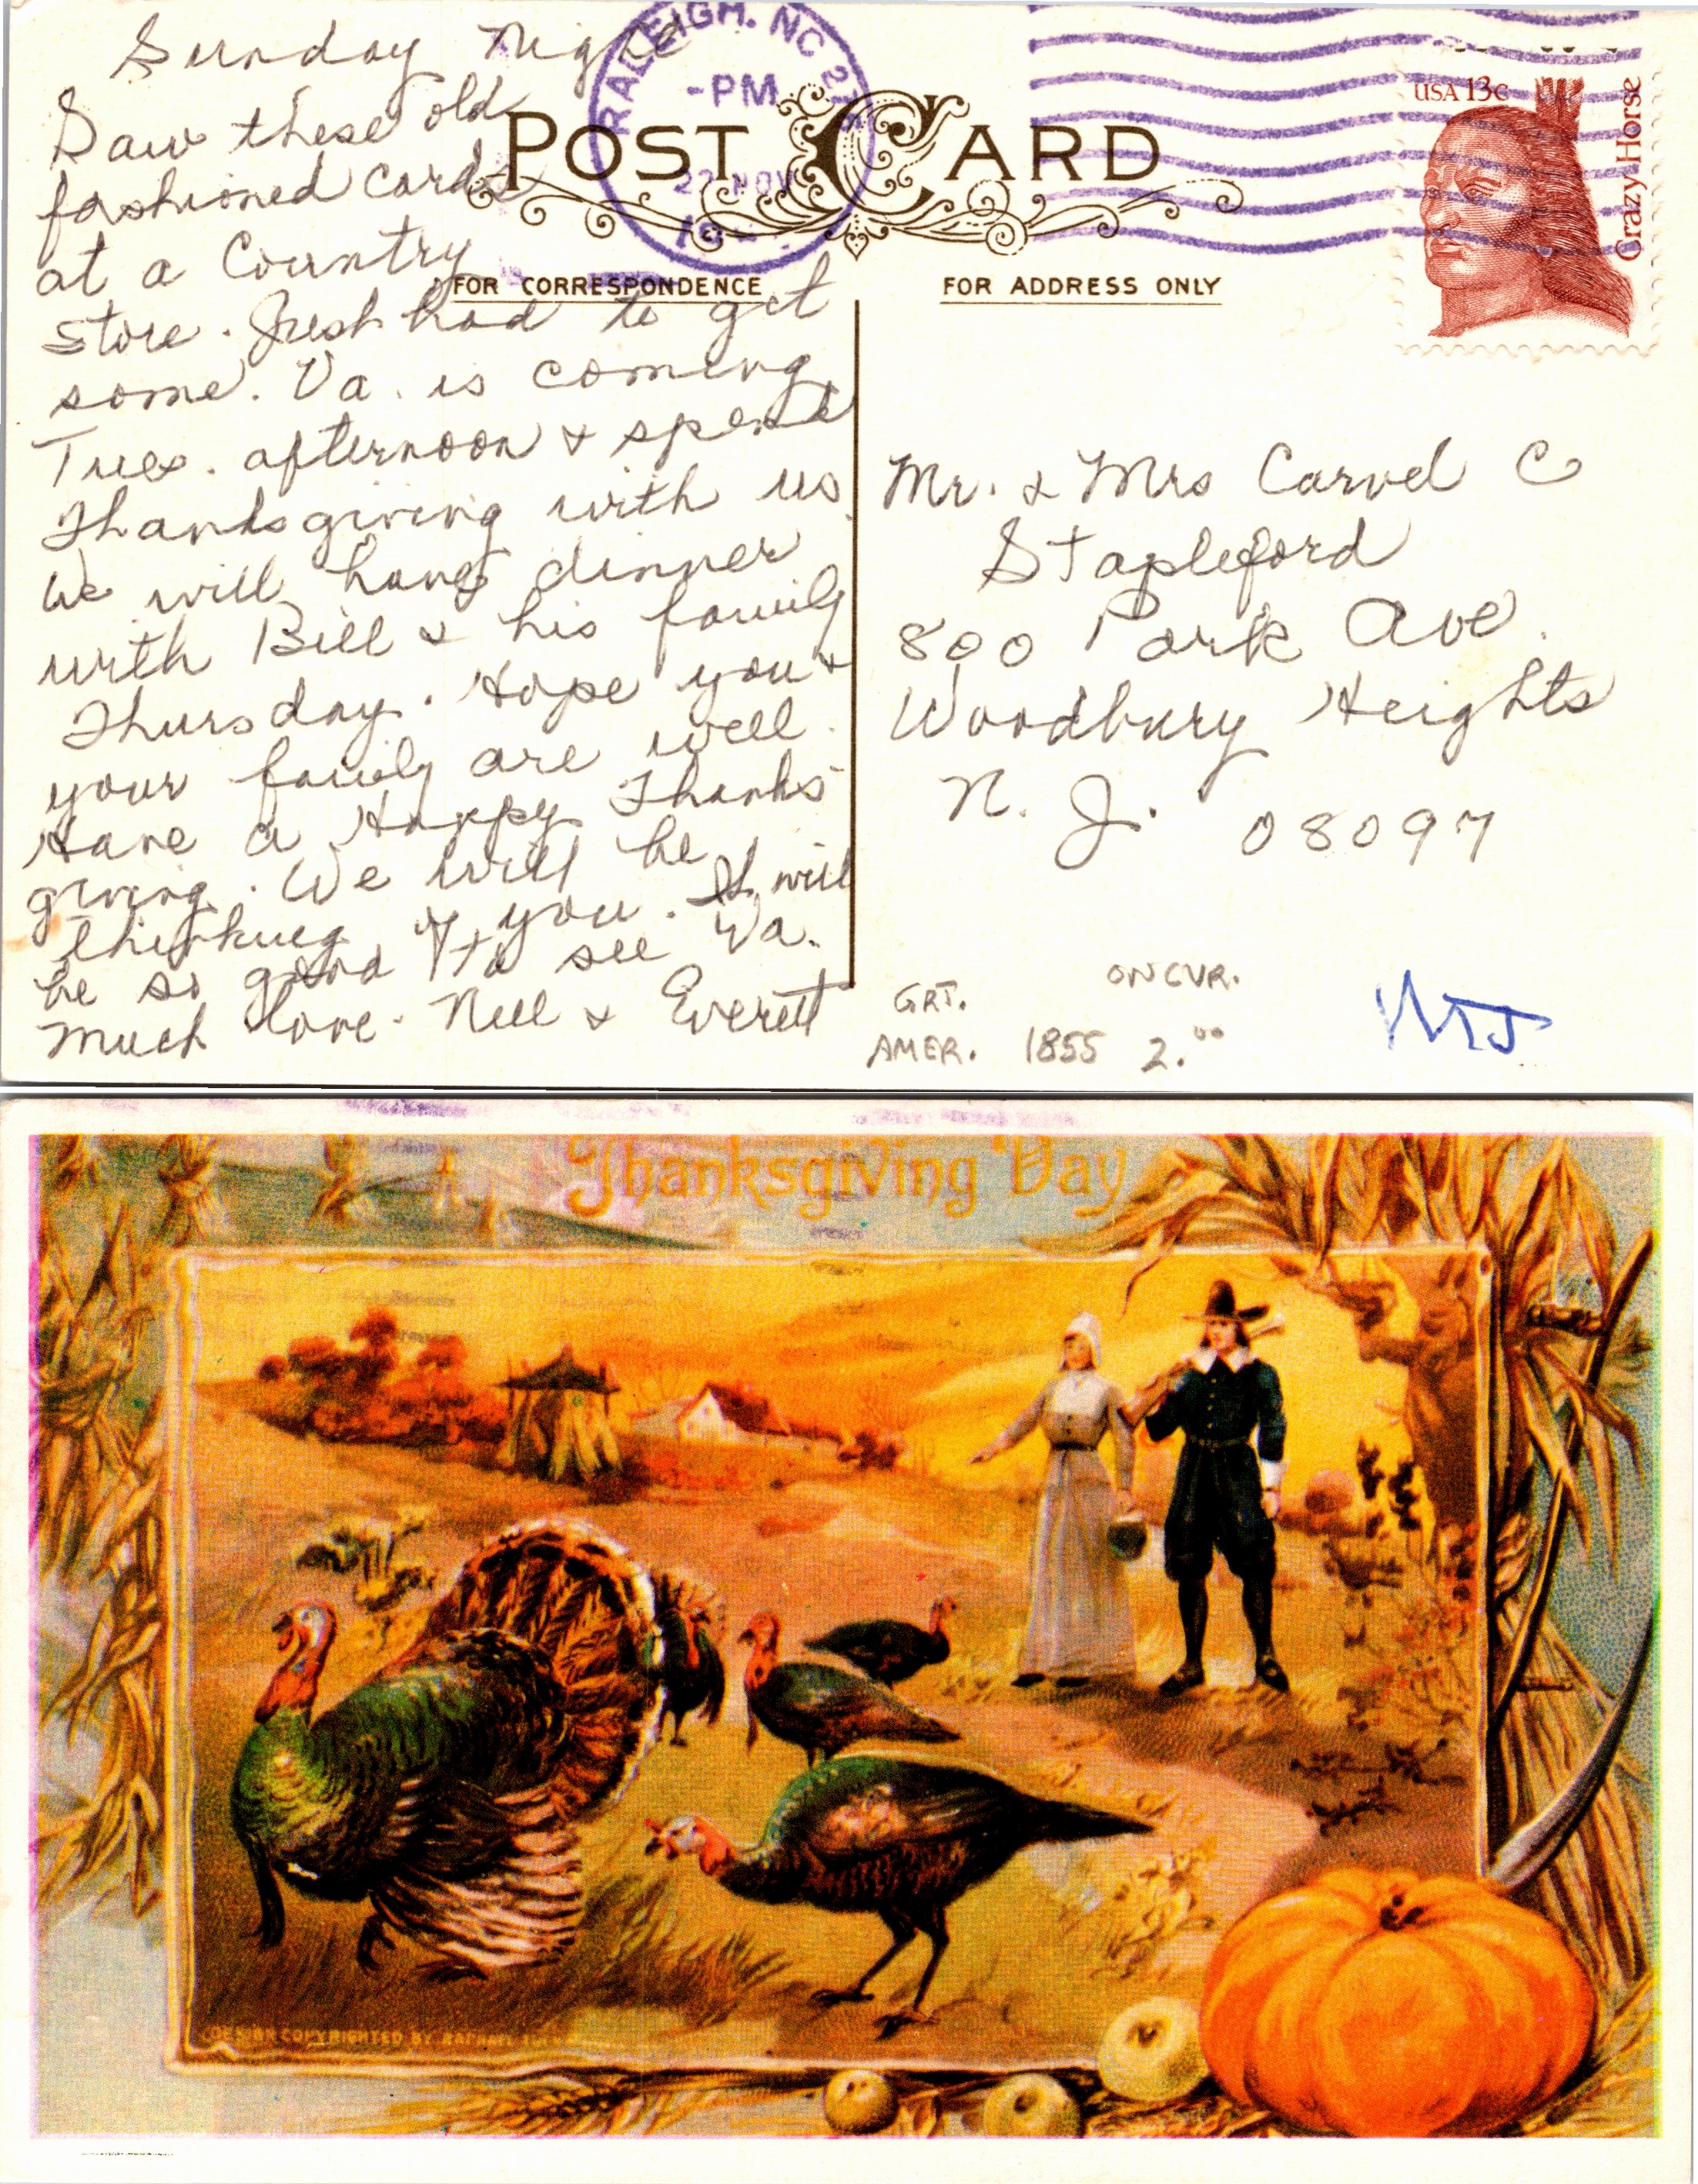 Sunday Night
Saw these old
fashioned cards
at a Country
store. Just had to get
some. Va. is coming
Tues. afternoon & spend
Thanksgiving with us.
We will have dinner
with Bill & his family
Thursday. Hope you &
your family are well.
Have a Happy Thanks-
giving. We will be
thinking of you. It will
be so good to see Va.
Much love. Nell & Everett
RALEIGH. NC
-PM
22 NOV
POST CARD
FOR CORRESPONDENCE
FOR ADDRESS ONLY
USA 13c
Crazy Horse
Mr. & Mrs Carvel C
Stapleford
800 Park Ave.
Woodbury Heights
N. J. 08097
ON CVR.
GRT.
AMER. 1855 2.00
Thanksgiving Day
DESIGN COPYRIGHTED BY RAPHAEL